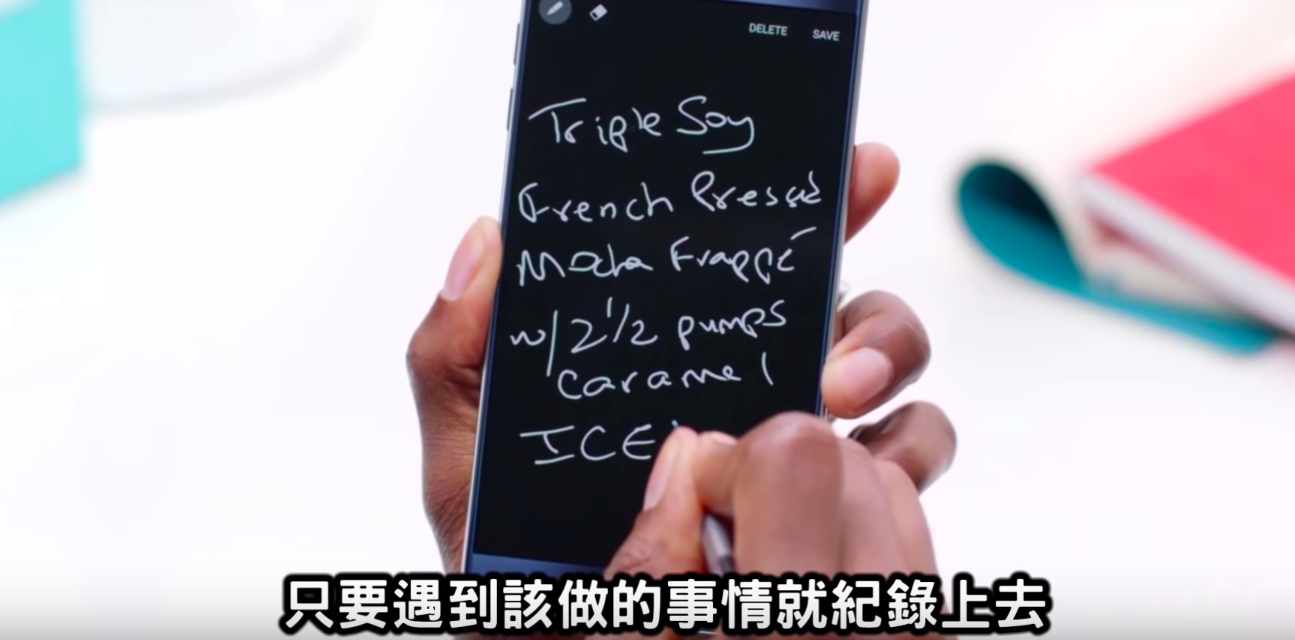 DELETE SAVE
Triple Soy
French Pressed
Mocha Frappé
w/ 2 1/2 pumps
caramel
ICE
只要遇到該做的事情就紀錄上去